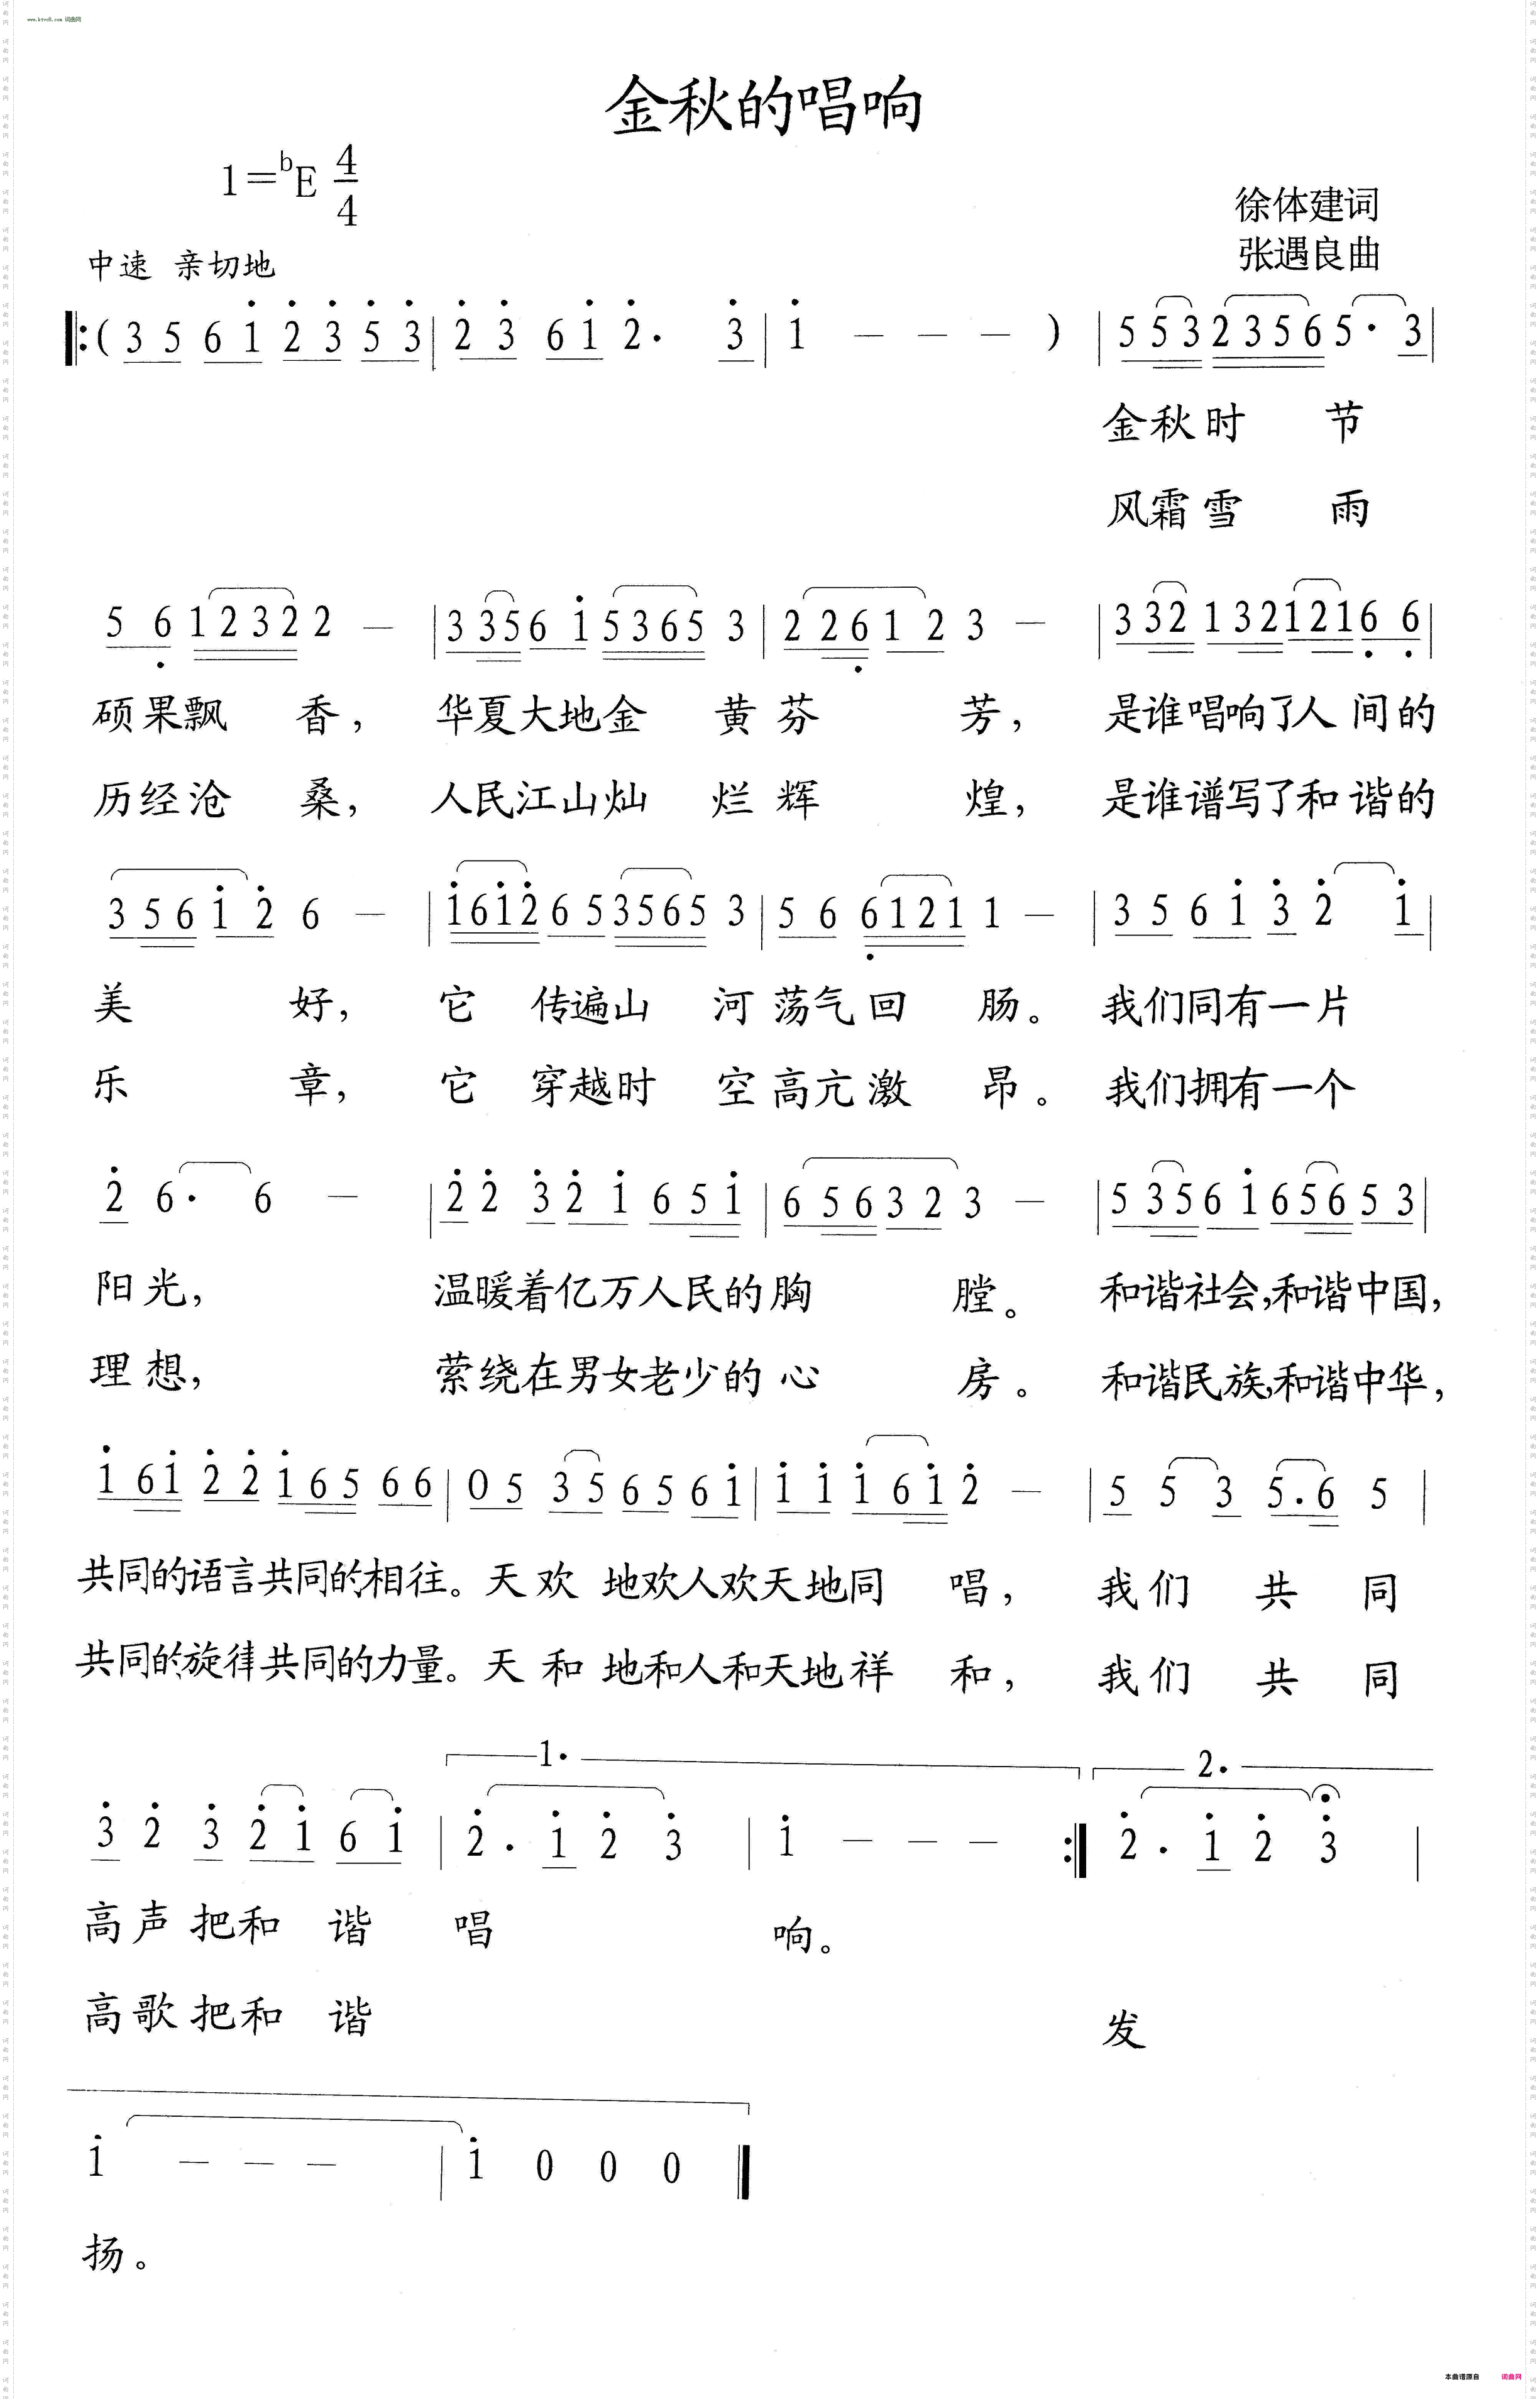 www.ktvc8.com 词曲网
金秋的唱响
1=ᵇE 4/4
徐体建词
中速 亲切地
张遇良曲
‖:( 3 5 6 i̇ 2̇ 3̇ 5̇ 3̇ | 2̇ 3̇ 6 i̇ 2̇· 3̇ | i̇ — — — ) | 5 5 3 2 3 5 6 5· 3 |
金秋时 节
风霜雪 雨
5 6̣ 1 2 3 2 2 — | 3 3 5 6 i̇ 5 3 6 5 3 | 2 2 6̣ 1 2 3 — | 3 3 2 1 3 2 1 2 1 6̣ 6̣ |
硕果飘 香, 华夏大地金 黄芬 芳, 是谁唱响了人间的
历经沧 桑, 人民江山灿 烂辉 煌, 是谁谱写了和谐的
3 5 6 i̇ 2̇ 6 — | i̇ 6 i̇ 2̇ 6 5 3 5 6 5 3 | 5 6 6̣ 1 2 1 1 — | 3 5 6 i̇ 3̇ 2̇ i̇ |
美 好, 它 传遍山 河荡气回 肠。 我们同有一片
乐 章, 它 穿越时 空高亢激 昂。 我们拥有一个
2̇ 6· 6 — | 2̇ 2̇ 3̇ 2̇ i̇ 6 5 i̇ | 6 5 6 3 2 3 — | 5 3 5 6 i̇ 6 5 6 5 3 |
阳光, 温暖着亿万人民的胸 膛。 和谐社会,和谐中国,
理想, 萦绕在男女老少的心 房。 和谐民族,和谐中华,
i̇ 6 i̇ 2̇ 2̇ i̇ 6 5 6 6 | 0 5 3 5 6 5 6 i̇ | i̇ i̇ i̇ 6 i̇ 2̇ — | 5 5 3 5· 6 5 |
共同的语言共同的相往。天欢 地欢人欢天地同 唱, 我们 共 同
共同的旋律共同的力量。天和 地和人和天地祥 和, 我们 共 同
1. 2.
3̇ 2̇ 3̇ 2̇ i̇ 6 i̇ | 2̇· i̇ 2̇ 3̇ | i̇ — — — :‖ 2̇· i̇ 2̇ 3̇ |
高声把和 谐 唱 响。
高歌把和 谐 发
i̇ — — — | i̇ 0 0 0 ‖
扬。
本曲谱源自 词曲网